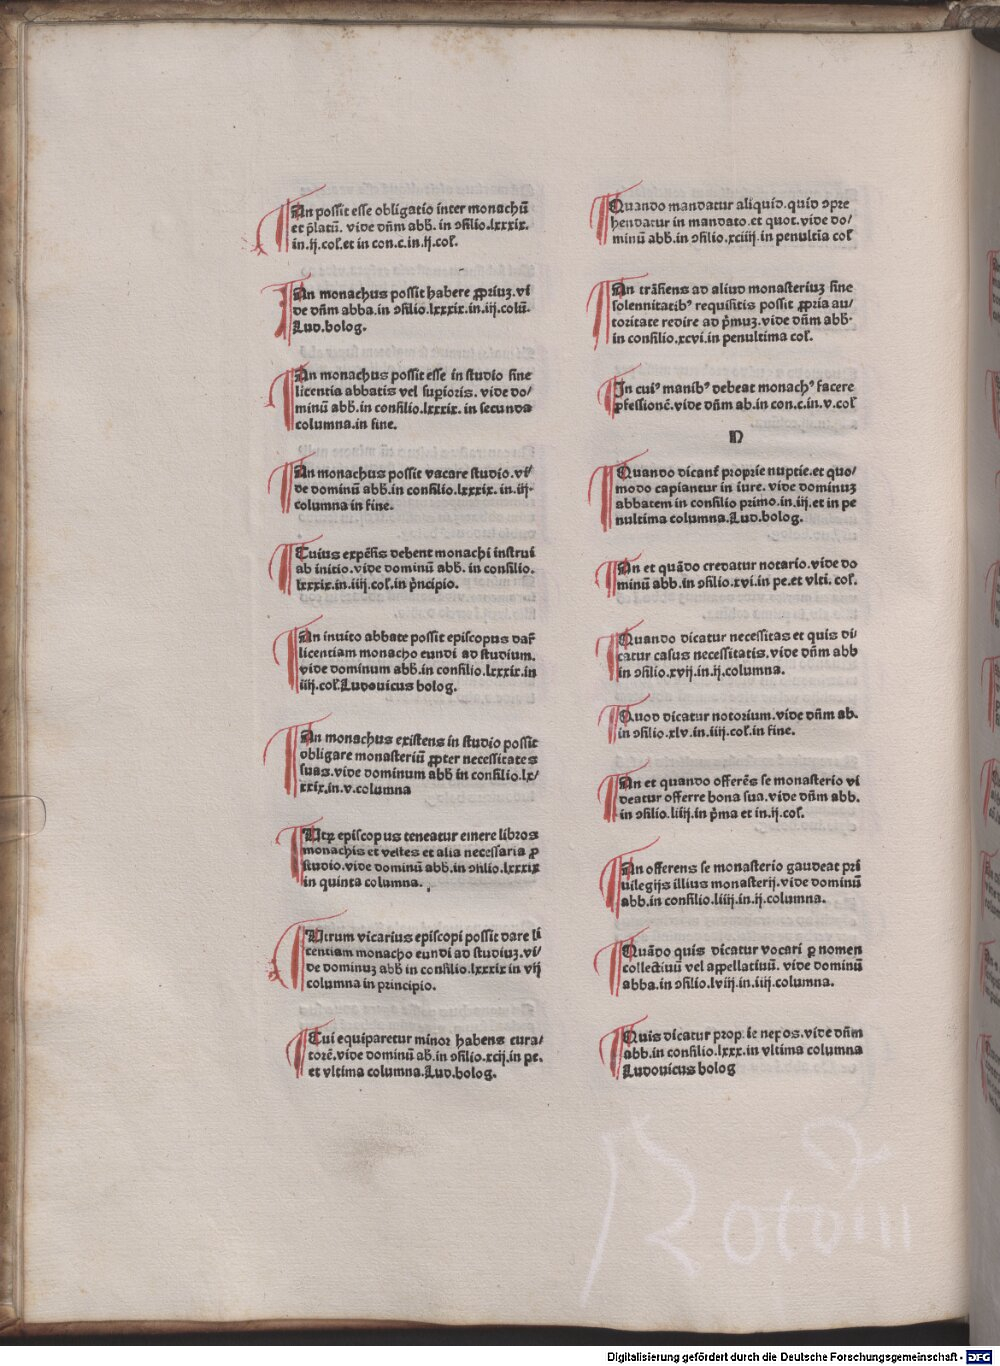 An possit esse obligatio inter monachū
et p̄latū. vide dn̄m abb̄. in ↄsilio.lxxxix.
in.ij.col.et in con.c.in.ij.col.
An monachus possit habere ꝓpriuꝫ.vi
de dn̄m abba.in ↄsilio.lxxxix.in.iij.colū.
Lud.bolog.
An monachus possit esse in studio sine
licentia abbatis vel supioris. vide do/
minū abb̄.in consilio.lxxxix. in secunda
columna.in fine.
An monachus possit vacare studio.vi/
de dominū abb̄.in consilio.lxxxix. in.iij.
columna in fine.
Cuius expēsis debent monachi instrui
ab initio.vide dominū abb̄.in consilio.
lxxxix.in.iiij.col.in p̄ncipio.
An inuito abbate possit episcopus dar̄
licentiam monacho eundi ad studium.
vide dominum abb̄.in consilio.lxxxix.in
iiij.col.Ludouicus bolog.
An monachus existens in studio possit
obligare monasteriū ꝓpter necessitates
suas.vide dominum abb̄ in consilio.lx/
xxix.in.v.columna
Utꝝ episcopus teneatur emere libros
monachis et vestes et alia necessaria ꝓ
studio.vide dominū abb̄.in ↄsilio.lxxxix
in quinta columna.
Utrum vicarius episcopi possit dare li
centiam monacho eundi ad studiuꝫ.vi/
de dominuꝫ abb̄ in consilio.lxxxix in vij
columna in principio.
Cui equiparetur minor habens cura/
torē.vide dominū ab̄.in ↄsilio.xcij.in pe.
et vltima columna.Lud.bolog.
Quando mandatur aliquid.quid ↄpre
hendatur in mandato.et quot.vide do/
minū abb̄.in ↄsilio.xciiij.in penultīa col
An trāsiens ad aliud monasteriuꝫ sine
solennitatibꝰ requisitis possit ꝓpria au/
toritate redire ad p̄muꝫ.vide dn̄m abb̄.
in consilio.xcvi.in penultima col.
In cuiꝰ manibꝰ debeat monachꝰ facere
ꝓfessionē.vide dn̄m ab.in con.c.in.v.col
N
Quando dicant᷑ proprie nuptie.et quo/
modo capiantur in iure. vide dominuꝫ
abbatem in consilio primo.in.iij.et in pe
nultima columna.Lud.bolog.
An et quādo credatur notario.vide do
minū abb.in ↄsilio.xvi.in pe.et vlti. col.
Quando dicatur necessitas et quis di/
catur casus necessitatis.vide dn̄m abb
in ↄsilio.xvij.in.ij.columna.
Quod dicatur notorium.vide dn̄m ab.
in ↄsilio.xlv.in.iiij.col.in fine.
An et quando offerēs se monasterio vi
deatur offerre bona sua.vide dn̄m abb.
in ↄsilio.liiij.in p̄ma et in.ij.col.
An offerens se monasterio gaudeat pri
uilegijs illius monasterij.vide dominū
abb.in consilio.liiij.in.ij.columna.
Quādo quis dicatur vocari ꝑ nomen
collectiuū vel appellatiuū. vide dominū
abba.in ↄsilio.lviij.in.iiij.columna.
Quis dicatur prop ie nepos.vide dn̄m
abb.in consilio.lxxx.in vltima columna
Ludouicus bolog
Digitalisierung gefördert durch die Deutsche Forschungsgemeinschaft - DFG